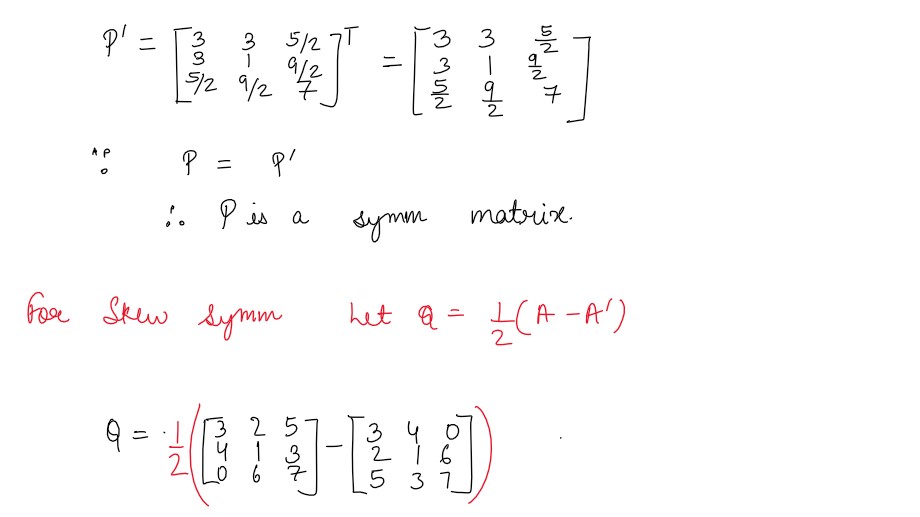 P' = [3 3 5/2; 3 1 9/2; 5/2 9/2 7]^T = [3 3 5/2; 3 1 9/2; 5/2 9/2 7]
∵ P = P'
∴ P is a symm matrix.
For Skew symm Let Q = 1/2 (A - A')
Q = 1/2 ([3 2 5; 4 1 3; 0 6 7] - [3 4 0; 2 1 6; 5 3 7])